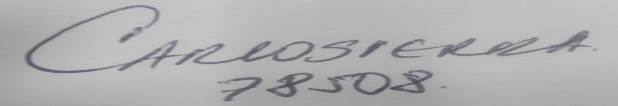 CARLOSIERRA.
78508.